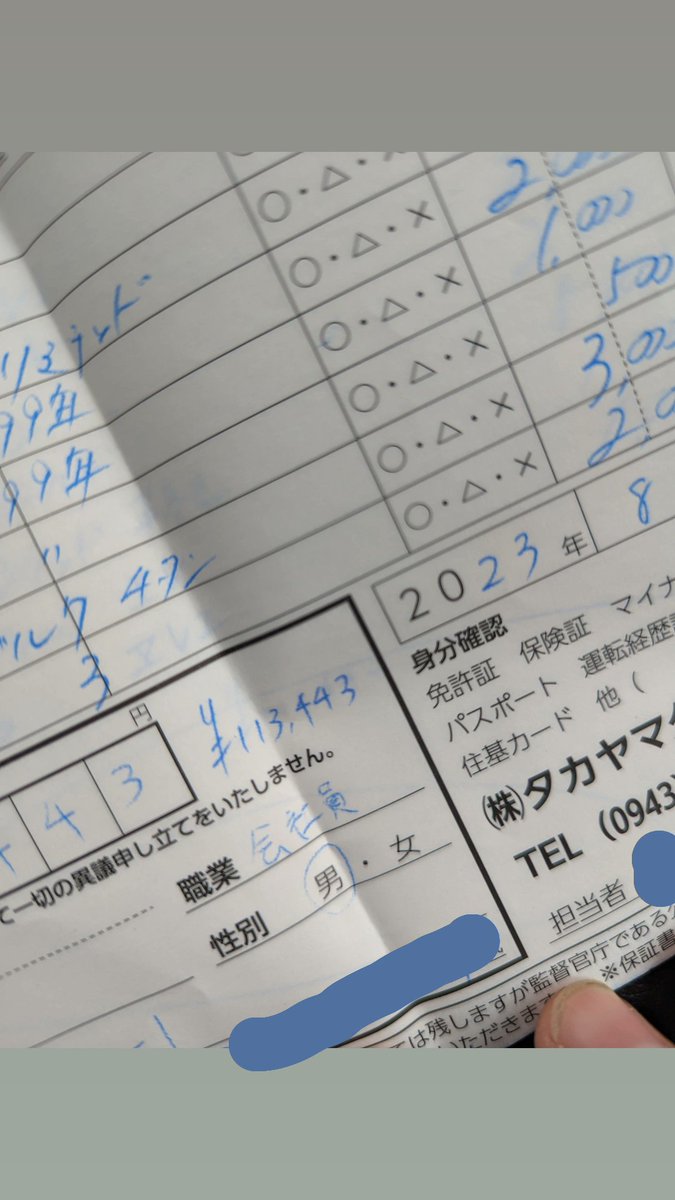 ○・△・×
○・△・× 2,000
○・△・× 1,000
○・△・× 500
○・△・× 3,000
○・△・× 2,0
リミテッド
99年
99年
〃
チタン
3
2023年 8
身分確認
免許証 保険証 マイナ
パスポート 運転経歴
住基カード 他(
㈱タカヤマ
TEL (0943
担当者
円
443
¥113,443
て一切の異議申し立てをいたしません。
職業 会社員
性別 男・女
ては残しますが監督官庁である
いただきます
※保証書